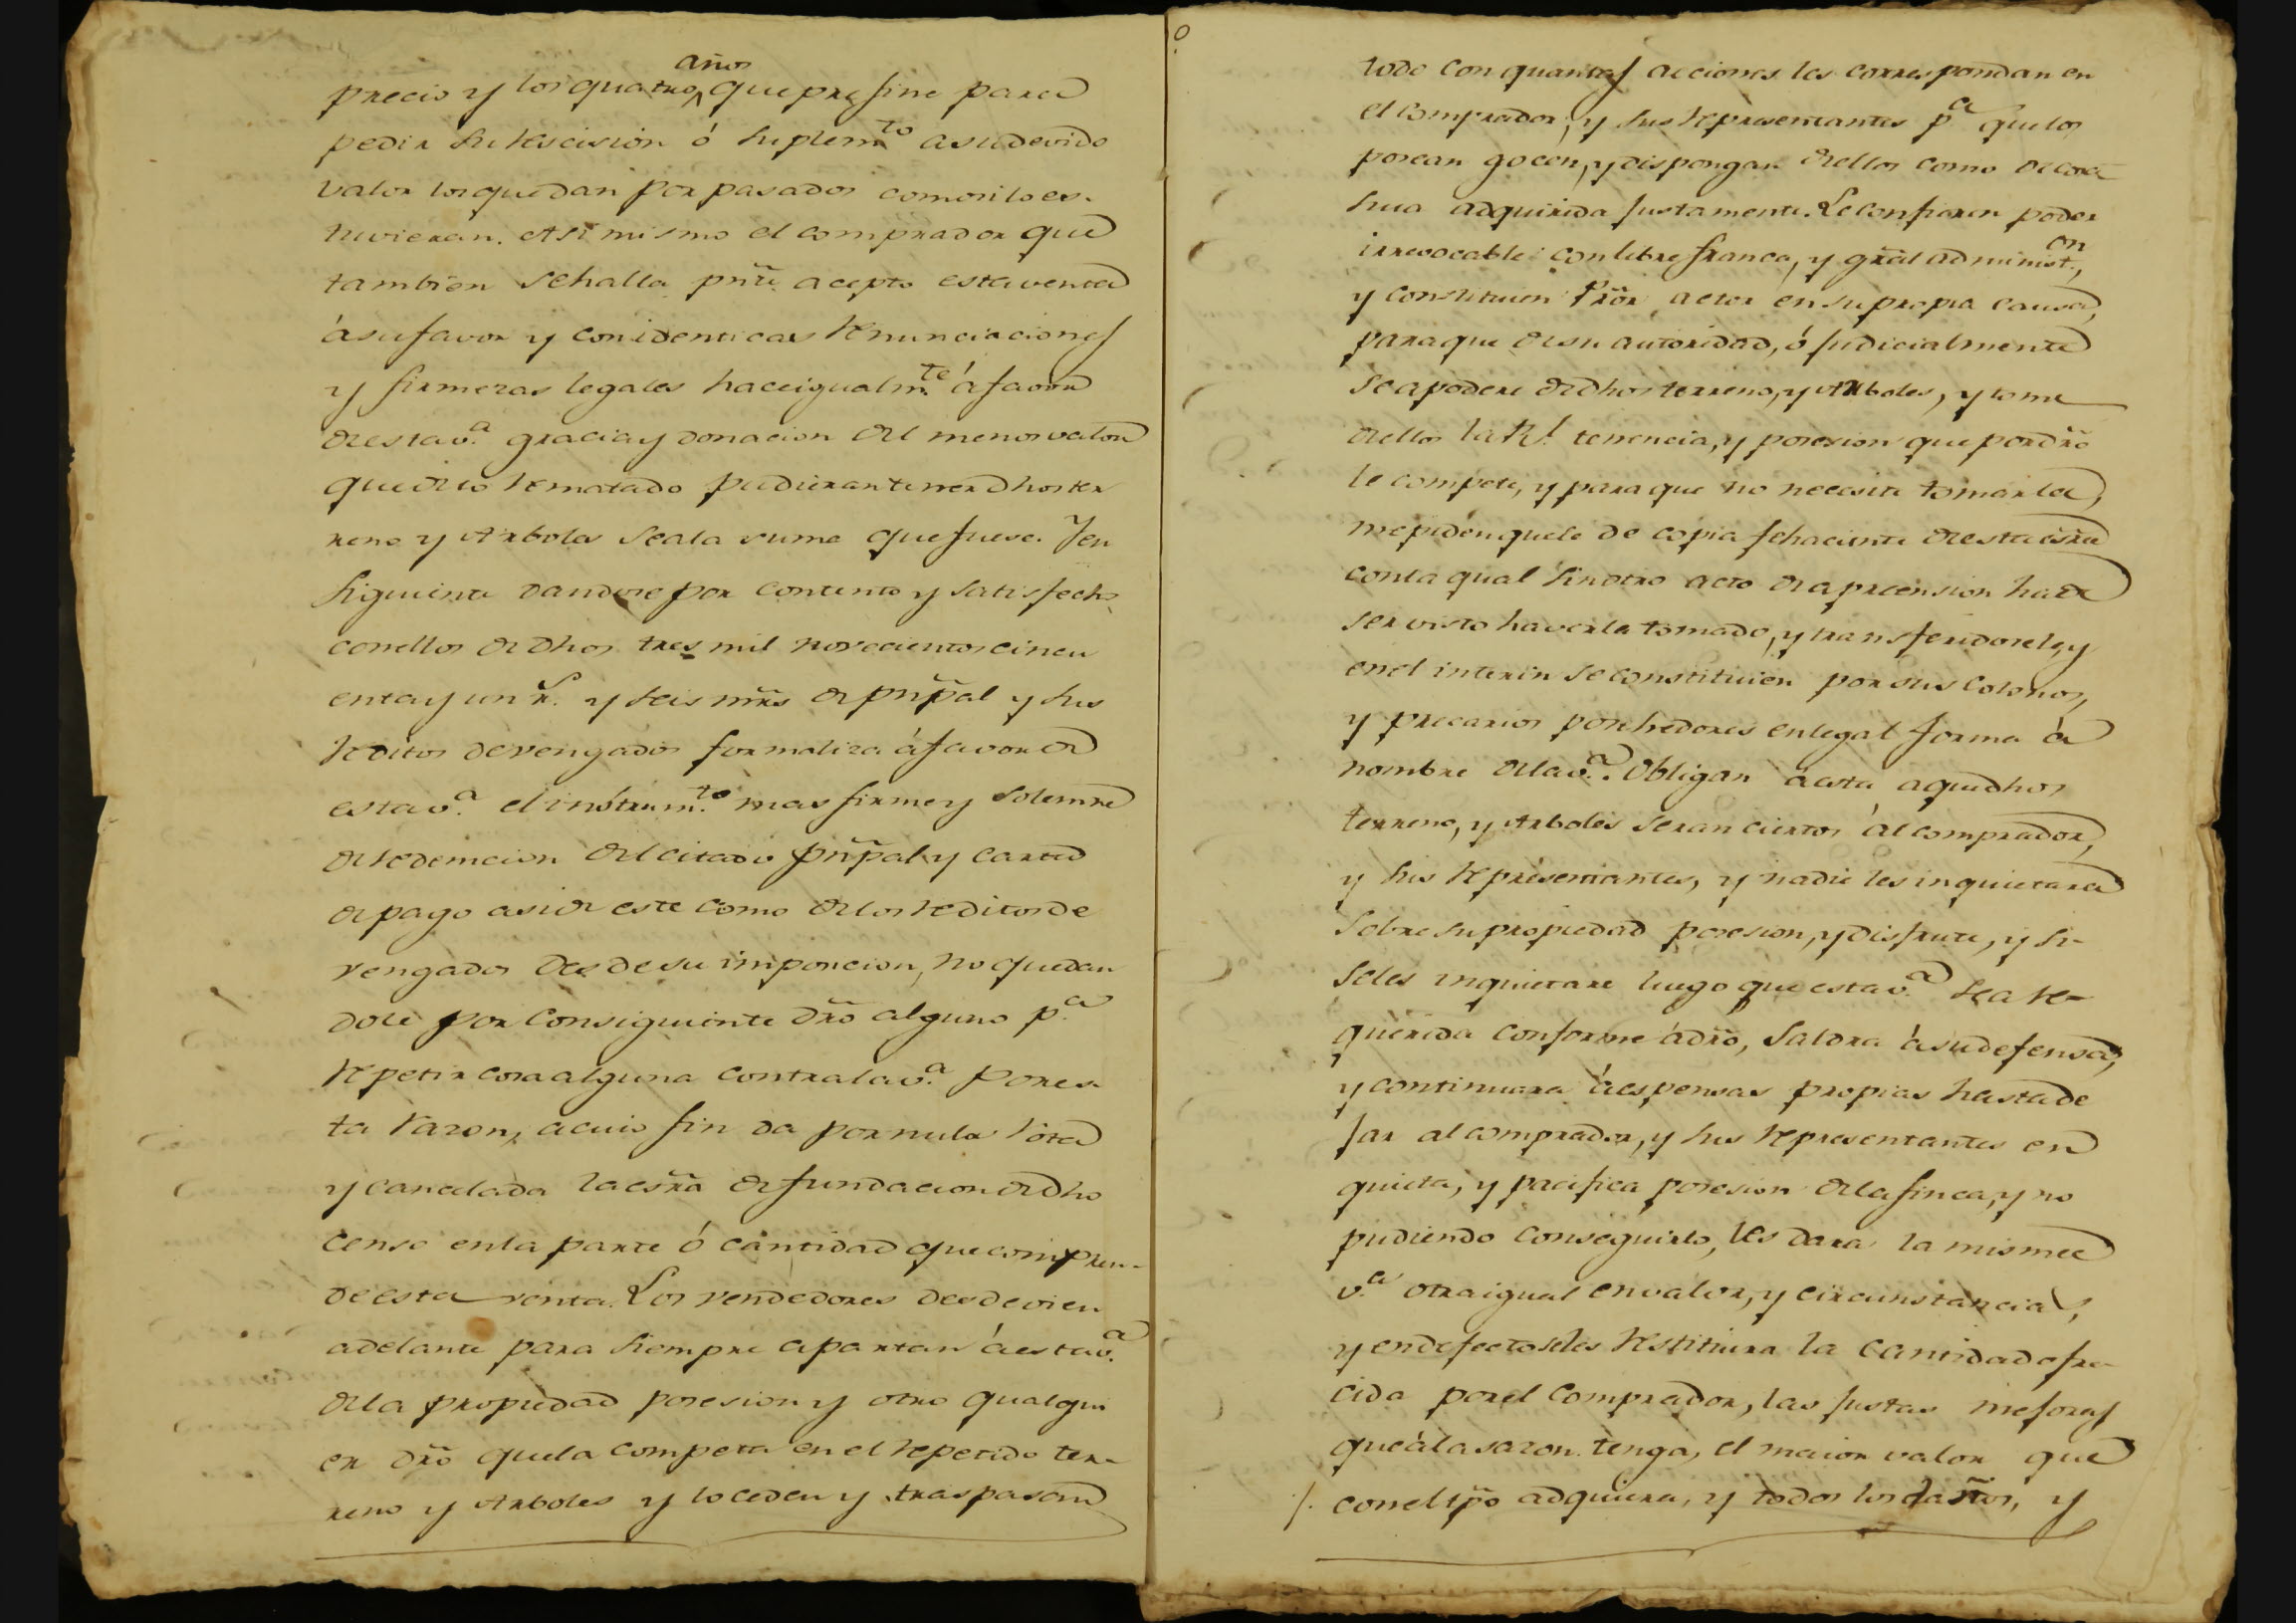 años
precio y los quatro ^ que prefine para
pedir su rescision ó suplem.to a su devido
valor los que dan por pasados como si lo es-
tuvieran. Asi mismo el comprador que
tambien se halla pñte. acepto esta venta
á su favor y con identicas renunciaciones
y firmezas legales hace igualm.te á favor
de esta v.a gracia y donacion del menor valor
que de lo rematado pudieran tener dhos ter
reno y Arboles sea la suma que fuese. Y en
siguiente dandose por contento y satisfecho
con ellos de dhos tres mil novecientos cincu
enta y un r.s y seis mr̃s de pñpal y sus
reditos devengados formaliza á favor de
esta v.a el instrum.to mas firme y solemne
de redemcion del citado pñpal y carta
de pago asi de este como de los reditos de
vengados desde su imposicion, no quedan
dole por consiguiente dr̃o alguno p.a
repetir cosa alguna contra la v.a por es-
ta razon, a cuio fin da por nula rota
y cancelada la esr̃a de fundacion de dho
censo en la parte ó cantidad que compren-
de esta venta. Los vendedores desde oi en
adelante para siempre apartan á esta v.a
de la propiedad posesion y otro qualqui
er dr̃o que la competa en el repetido ter-
reno y Arboles y lo ceden y traspasan
todo con quantas acciones les correspondan en
el comprador, y sus representantes p.a que los
posean gocen, y dispongan de ellos como de cosa
sua adquirida justamente. Le confieren poder
irrevocable con libre franca, y gr̃al administ.on,
y constituien Pr̃or actor en su propia causa,
para que de su autoridad, ó judicialmente
se apodere de dhos terreno, y Arboles, y tome
de ellos la R.l tenencia, y posesion que por dr̃o
le compete, y para que no necesite tomarla,
me piden que le de copia fehaciente de esta esr̃a
con la qual sin otro acto de aprension ha de
ser visto haverla tomado, y transferidosele, y
en el interin se constituien por sus colonos,
y precarios posehedores en legal forma á
nombre de la v.a. Obligan a esta a que dhos
terreno, y Arboles seran ciertos ál comprador,
y sus representantes, y nadie les inquietara
sobre su propiedad posesion, y disfrute, y si-
se les inquietare luego que esta v.a sea re-
querida conforme á dr̃o, saldra á su defensa,
y continuara á espensas propias hasta de
jar al comprador, y sus representantes en
quieta, y pacifica posesion de la finca, y no
pudiendo conseguirlo, les dara la misma
v.a otra igual en valor, y circunstancias,
y en defecto seles restituira la cantidad ofre-
cida por el comprador, las justas mejoras
que á la sazon tenga, el maior valor que
con el tp̃o adquiera, y todos los daños, y